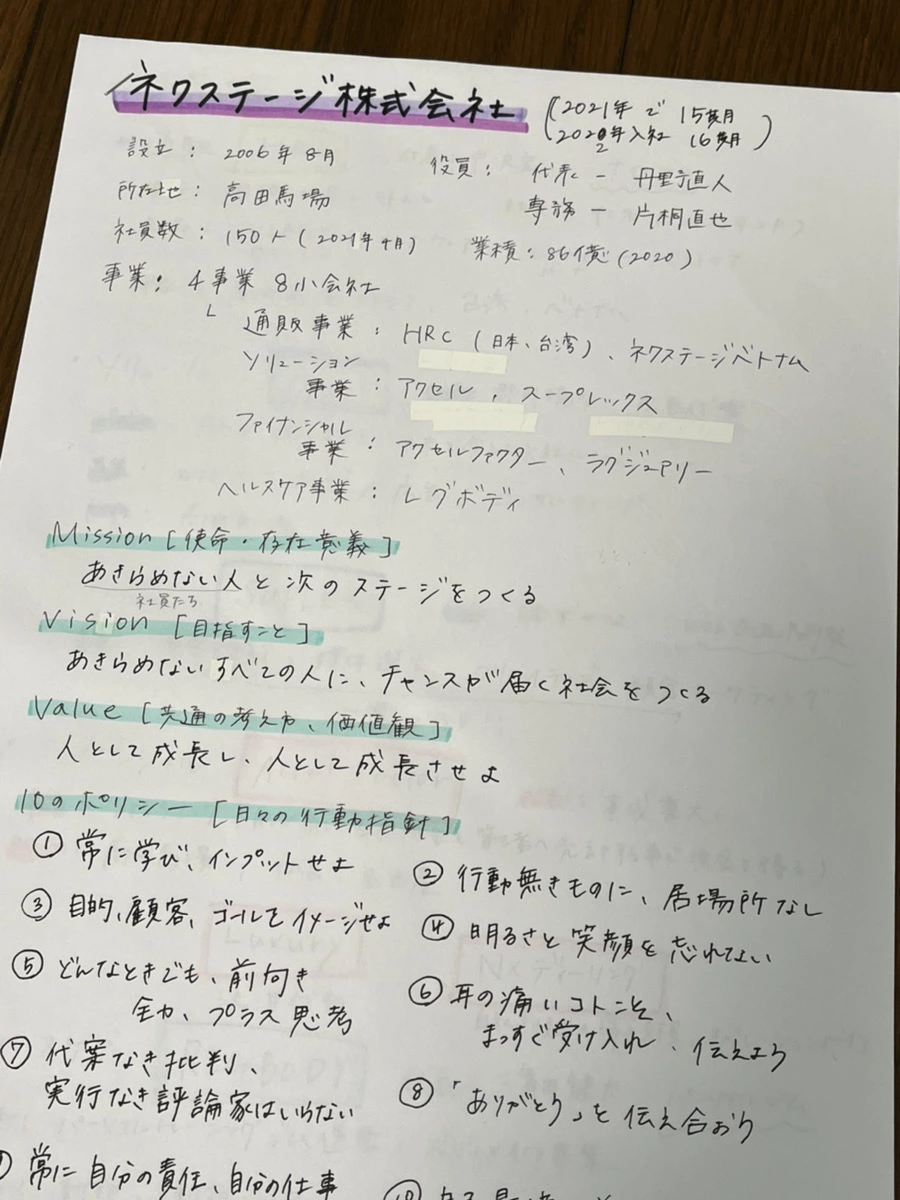 ネクステージ株式会社
(2021年で 15期目
2022年入社 16期目)
設立: 2006年8月
役員: 代表 - 丹野直人
専務 - 片桐直也
所在地: 高田馬場
社員数: 150人(2021年4月)
業積: 86億(2020)
事業: 4事業 8小会社
└ 通販事業: HRC (日本、台湾)、ネクステージベトナム
ソリューション
事業: アクセル, スープレックス
ファイナンシャル
事業: アクセルファクター、ラグジュアリー
ヘルスケア事業: レグボディ
Mission [使命・存在意義]
あきらめない人と次のステージをつくる
社員たち
Vision [目指すこと]
あきらめないすべての人に、チャンスが届く社会をつくる
Value [共通の考え方、価値観]
人として成長し、人として成長させよ
10のポリシー [日々の行動指針]
① 常に学び、インプットせよ
② 行動無きものに、居場所なし
③ 目的、顧客、ゴールをイメージせよ
④ 明るさと笑顔を忘れない
⑤ どんなときでも、前向き
全力、プラス思考
⑥ 耳の痛いコトこそ、
まっすぐ受け入れ、伝えよう
⑦ 代案なき批判、
実行なき評論家はいらない
⑧ 「ありがとう」を伝え合おう
常に自分の責任、自分の仕事